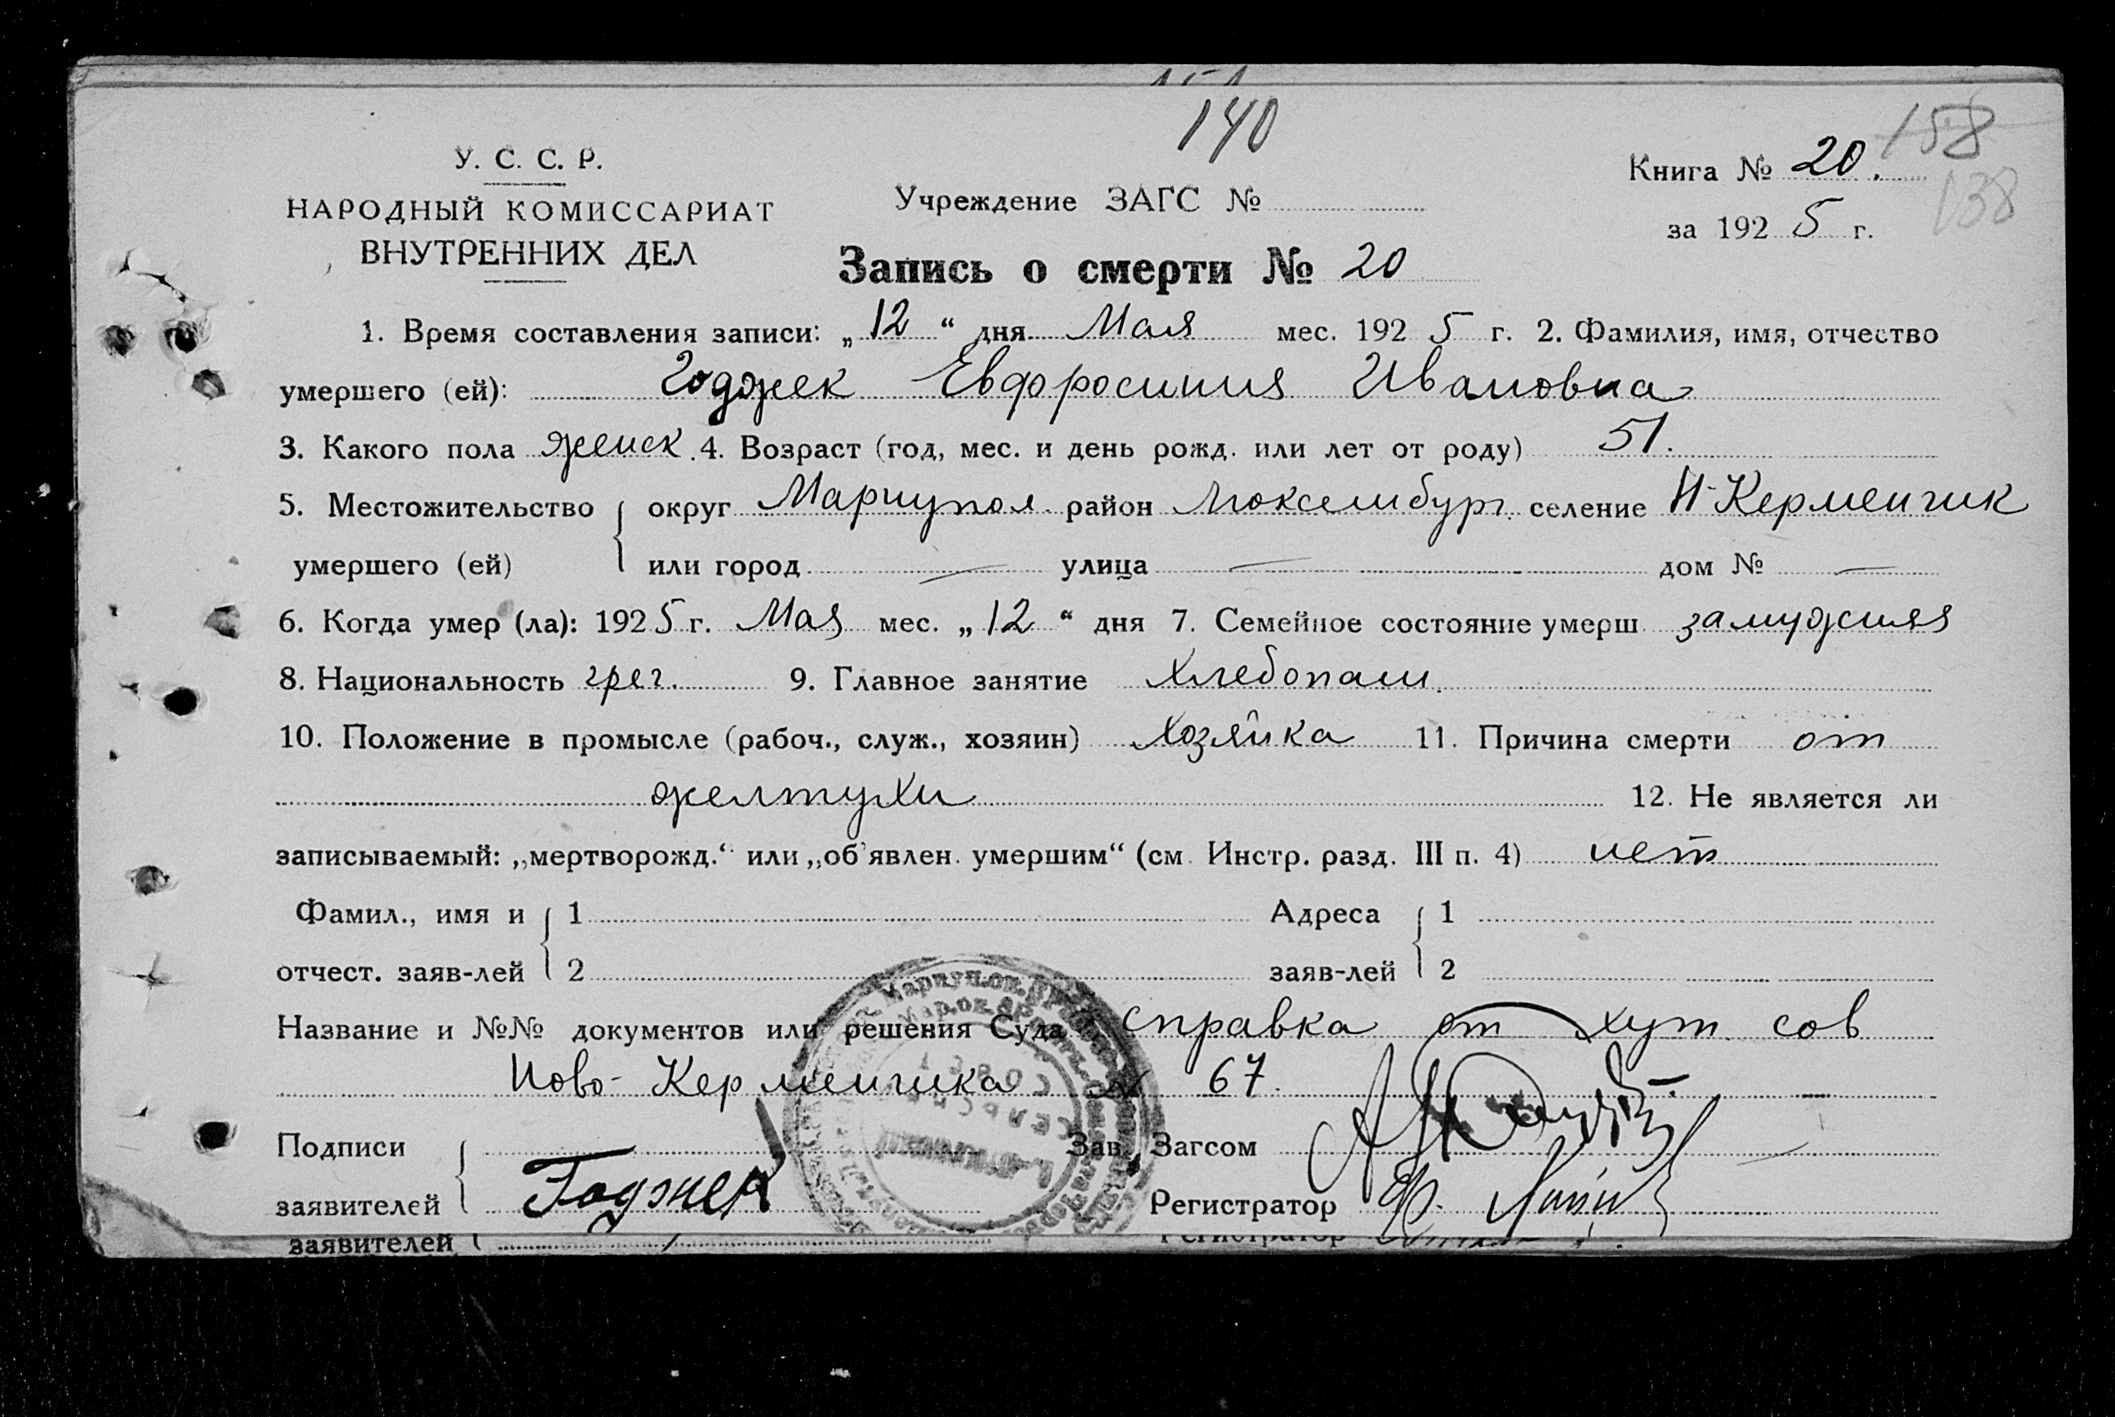 140
У. С. С. Р.
НАРОДНЫЙ КОМИССАРИАТ
ВНУТРЕННИХ ДЕЛ
Учреждение ЗАГС №
Книга № 20. 158
138
за 192 5 г.
Запись о смерти № 20
1. Время составления записи: „ 12 “ дня Мая мес. 192 5 г. 2. Фамилия, имя, отчество
умершего (ей): Годжек Евфросиния Ивановна
3. Какого пола женск. 4. Возраст (год, мес. и день рожд. или лет от роду) 51.
5. Местожительство округ Мариупол. район Люксембург. селение Н-Керменчик
умершего (ей) или город — улица — дом № —
6. Когда умер (ла): 192 5 г. Мая мес. „ 12 “ дня 7. Семейное состояние умерш замужняя
8. Национальность грег. 9. Главное занятие Хлебопаш.
10. Положение в промысле (рабоч., служ., хозяин) Хозяйка 11. Причина смерти от
желтухи 12. Не является ли
записываемый: „мертворожд.“ или „об'явлен. умершим“ (см. Инстр. разд. III п. 4) нет
Фамил., имя и 1 Адреса 1
отчест. заяв-лей 2 заяв-лей 2
Название и №№ документов или решения Суда справка от хут. сов
Ново-Керменчика № 67.
Подписи Зав. Загсом
заявителей Годжек Регистратор Ф.
заявителей